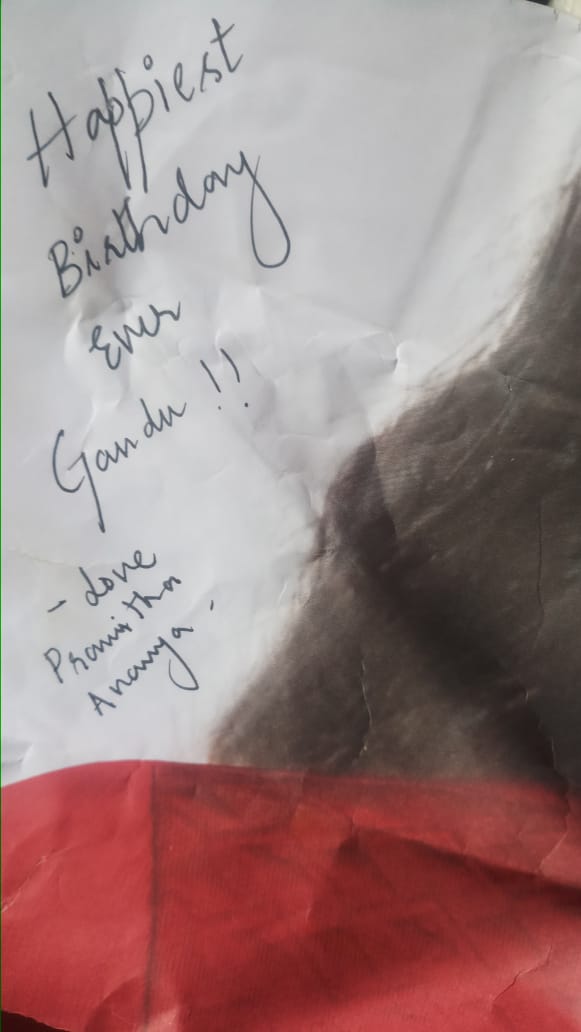 Happiest
Birthday
Ever
Gandu !!
- Love
Promitha
Ananya -